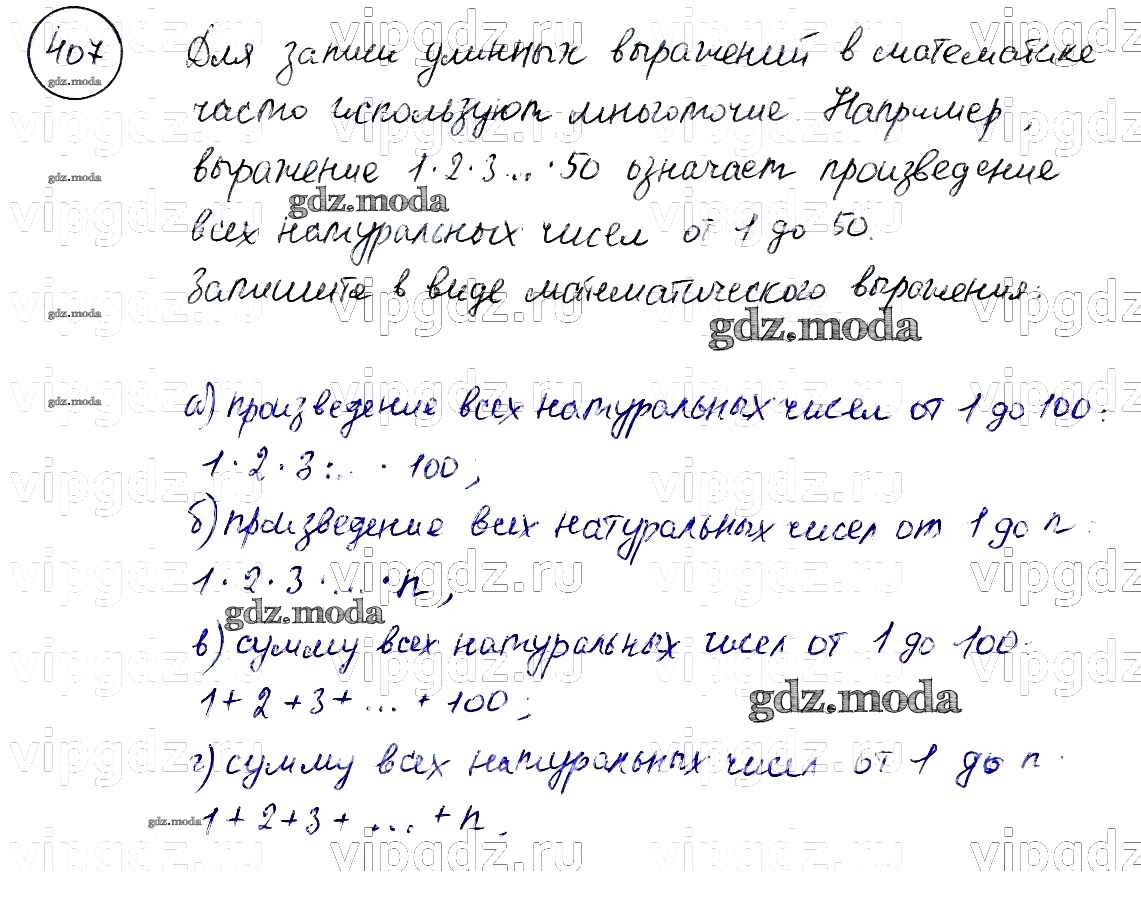 407
Для записи длинных выражений в математике
часто используют многоточие. Например,
выражение 1·2·3...·50 означает произведение
всех натуральных чисел от 1 до 50.
Запишите в виде математического выражения:
а) произведение всех натуральных чисел от 1 до 100:
1·2·3·...·100;
б) произведение всех натуральных чисел от 1 до n:
1·2·3·...·n;
в) сумму всех натуральных чисел от 1 до 100:
1+2+3+...+100;
г) сумму всех натуральных чисел от 1 до n:
1+2+3+...+n.
gdz.moda
vipgdz.ru